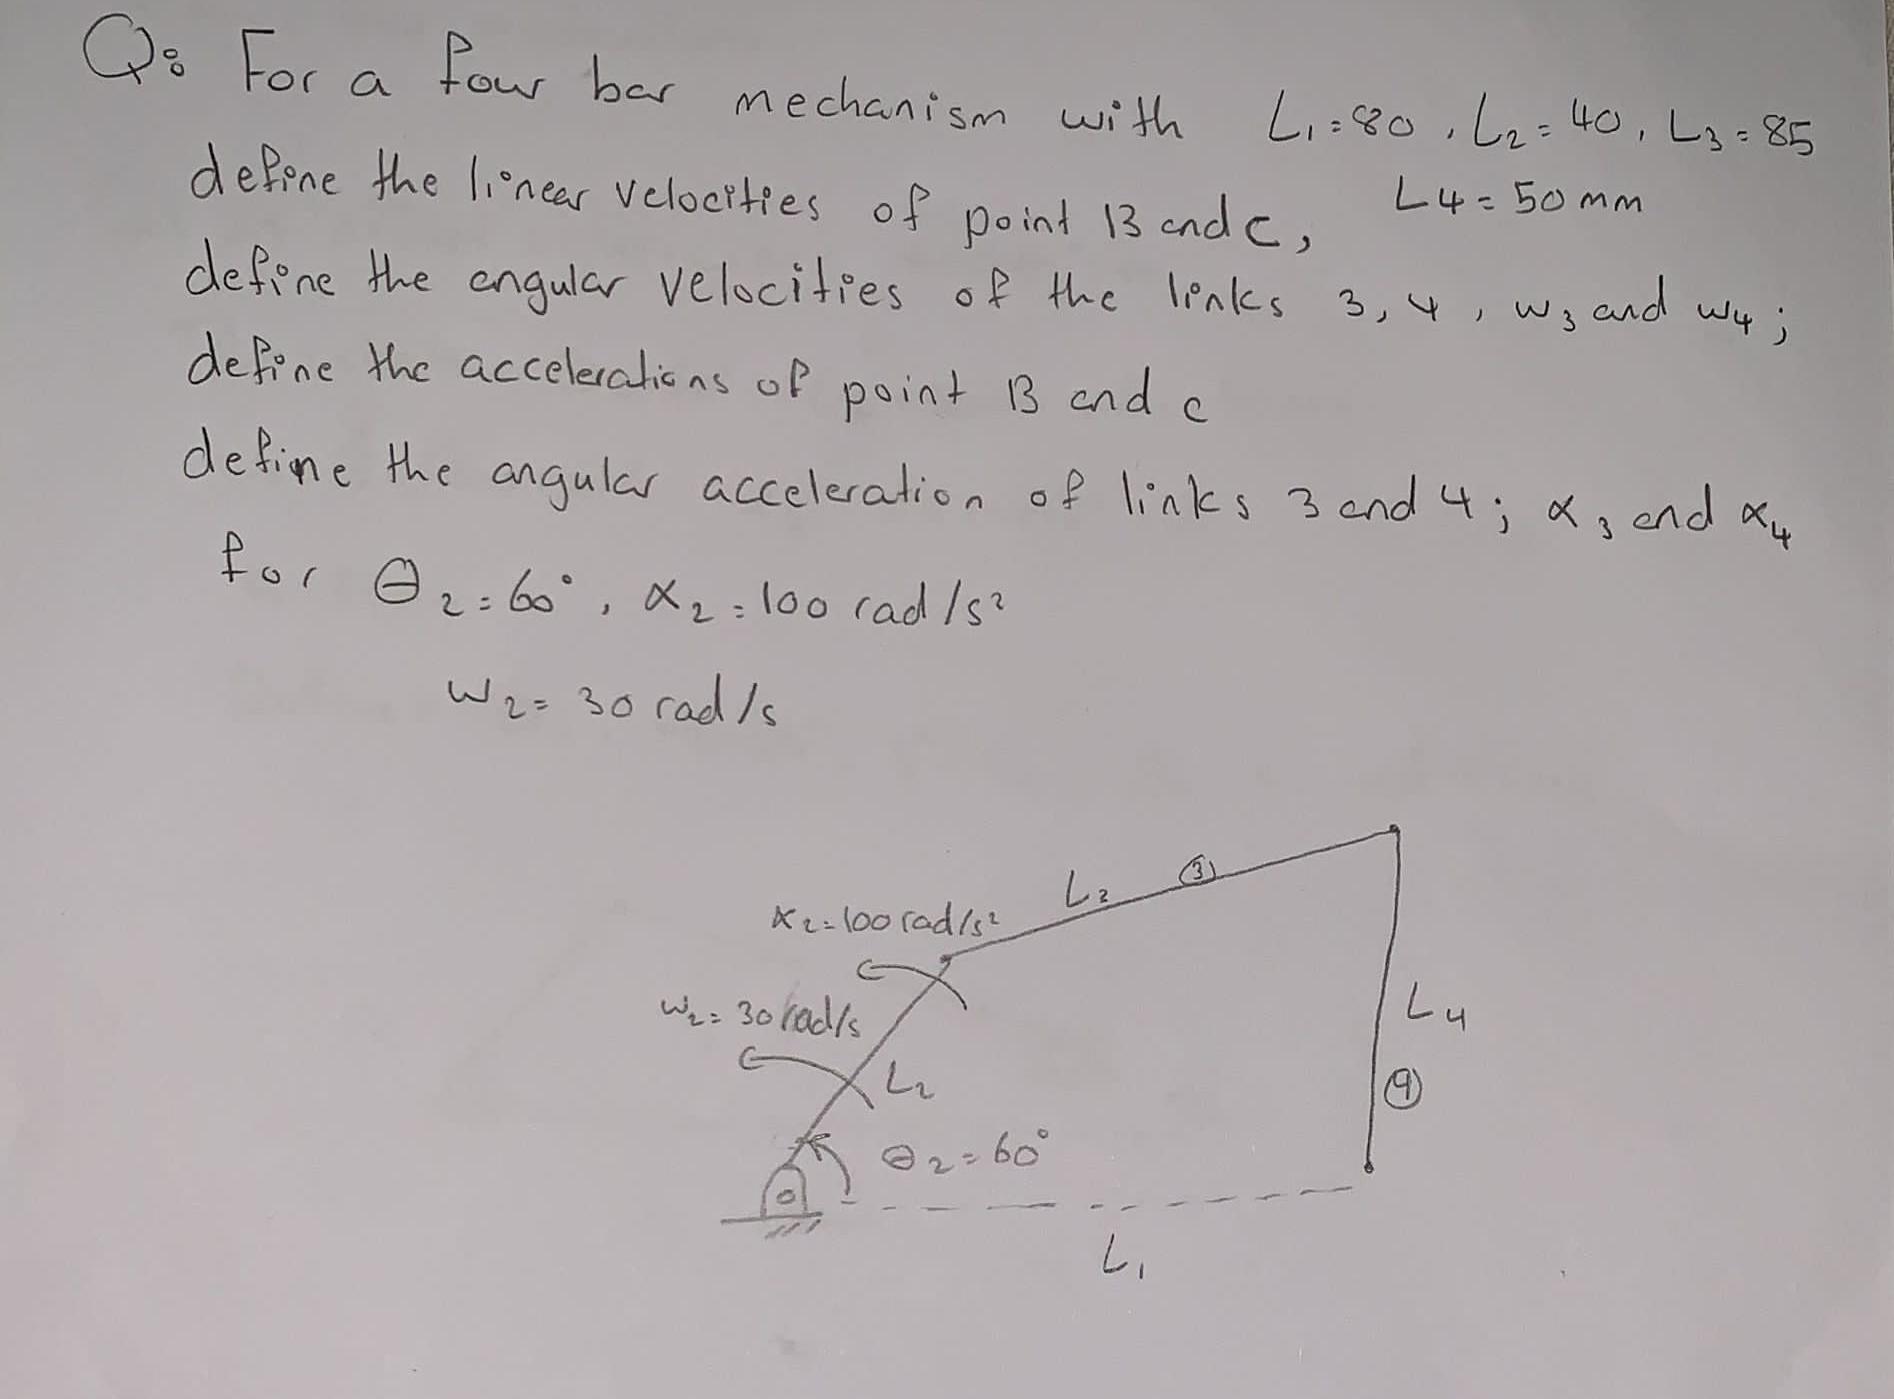 Q: For a four bar mechanism with L₁=80, L₂=40, L₃=85
L4=50mm
define the linear velocities of point B and c,
define the angular velocities of the links 3, 4, w₃ and w₄;
define the accelerations of point B and c
define the angular acceleration of links 3 and 4; α₃ and α₄
for θ₂=60°, α₂=100 rad/s²
w₂=30 rad/s
L₂ ③
α₂=100 rad/s²
w₂=30 rad/s
L₄
L₂
④
θ₂=60°
L₁